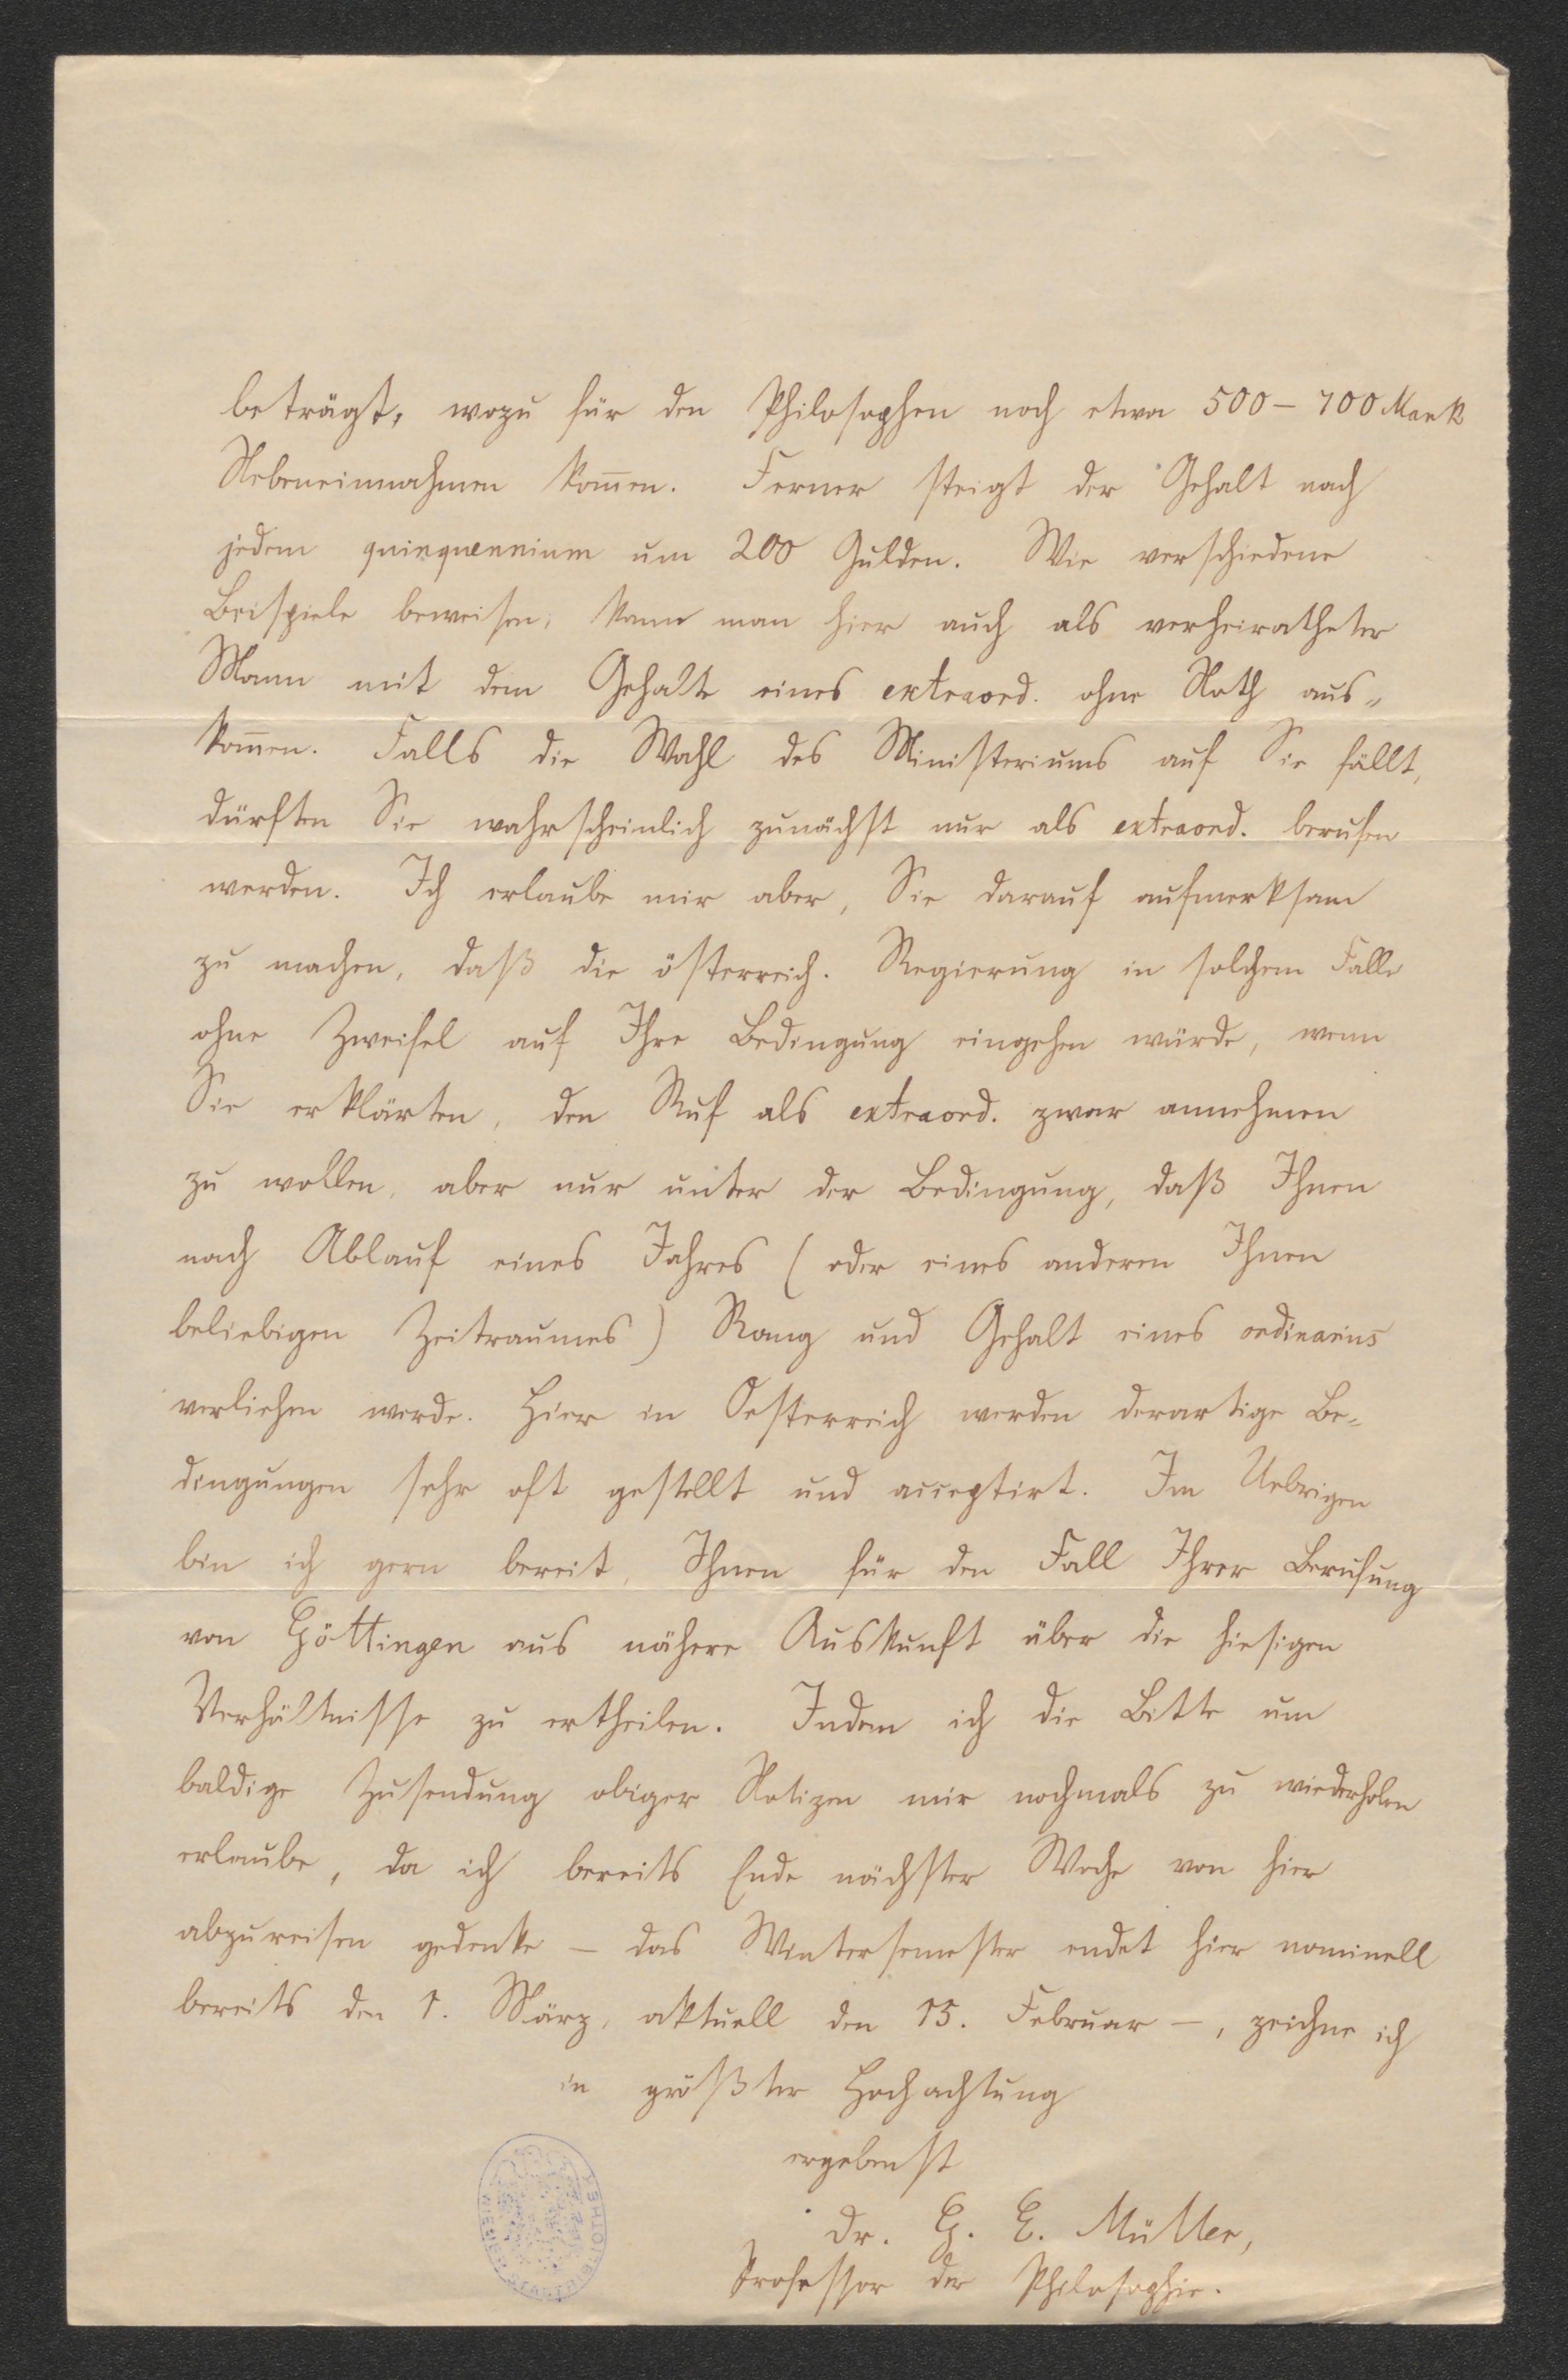 beträgt, wozu für den Philosophen noch etwa 500 – 700 Mark
Nebeneinnahmen kom̄en. Ferner steigt der Gehalt nach
jedem quinquennium um 200 Gulden. Wie verschiedene
Beispiele beweisen, kann man hier auch als verheiratheter
Mann mit dem Gehalte eines extraord. ohne Noth aus„
kom̄en. Falls die Wahl des Ministeriums auf Sie fällt,
dürften Sie wahrscheinlich zunächst nur als extraord. berufen
werden. Ich erlaube mir aber, Sie darauf aufmerksam
zu machen, daß die österreich. Regierung in solchem Falle
ohne Zweifel auf Ihre Bedingung eingehen würde, wenn
Sie erklärten, den Ruf als extraord. zwar annehmen
zu wollen, aber nur unter der Bedingung, daß Ihnen
nach Ablauf eines Jahres (oder eines anderen Ihnen
beliebigen Zeitraumes) Rang und Gehalt eines ordinarius
verliehen werde. Hier in Oesterreich werden derartige Be„
dingungen sehr oft gestellt und acceptirt. Im Uebrigen
bin ich gern bereit, Ihnen für den Fall Ihrer Berufung
von Göttingen aus nähere Auskunft über die hiesigen
Verhältnisse zu ertheilen. Indem ich die Bitte um
baldige Zusendung obiger Notizen mir nochmals zu wiederholen
erlaube, da ich bereits Ende nächster Woche von hier
abzureisen gedenke – das Wintersemester endet hier nominell
bereits den 1. März, aktuell den 15. Februar –, zeichne ich
in größter Hochachtung
ergebenst
Dr. G. E. Müller,
Professor der Philosophie.
WIENER STADTBIBLIOTHEK